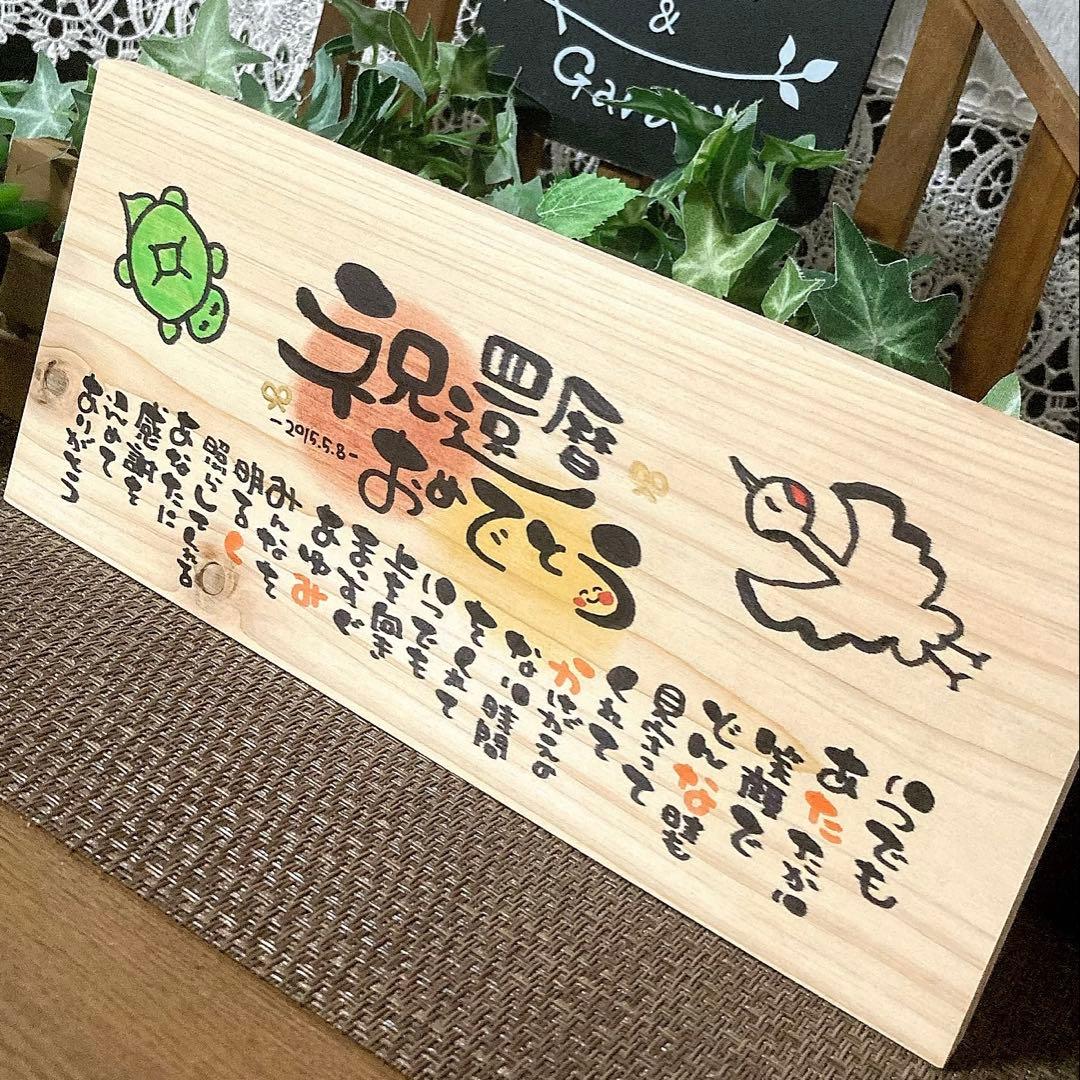 &
Garden
祝還暦
おめでとう
-2015.5.8-
いつでも
あたたかい
笑顔で
どんな時も
見守って
くれて
かけがえの
ない時間
をくれて
いつでも
を向き
みんなを
照らしてくれる
あなたに
感謝を
込めて
ありがとう